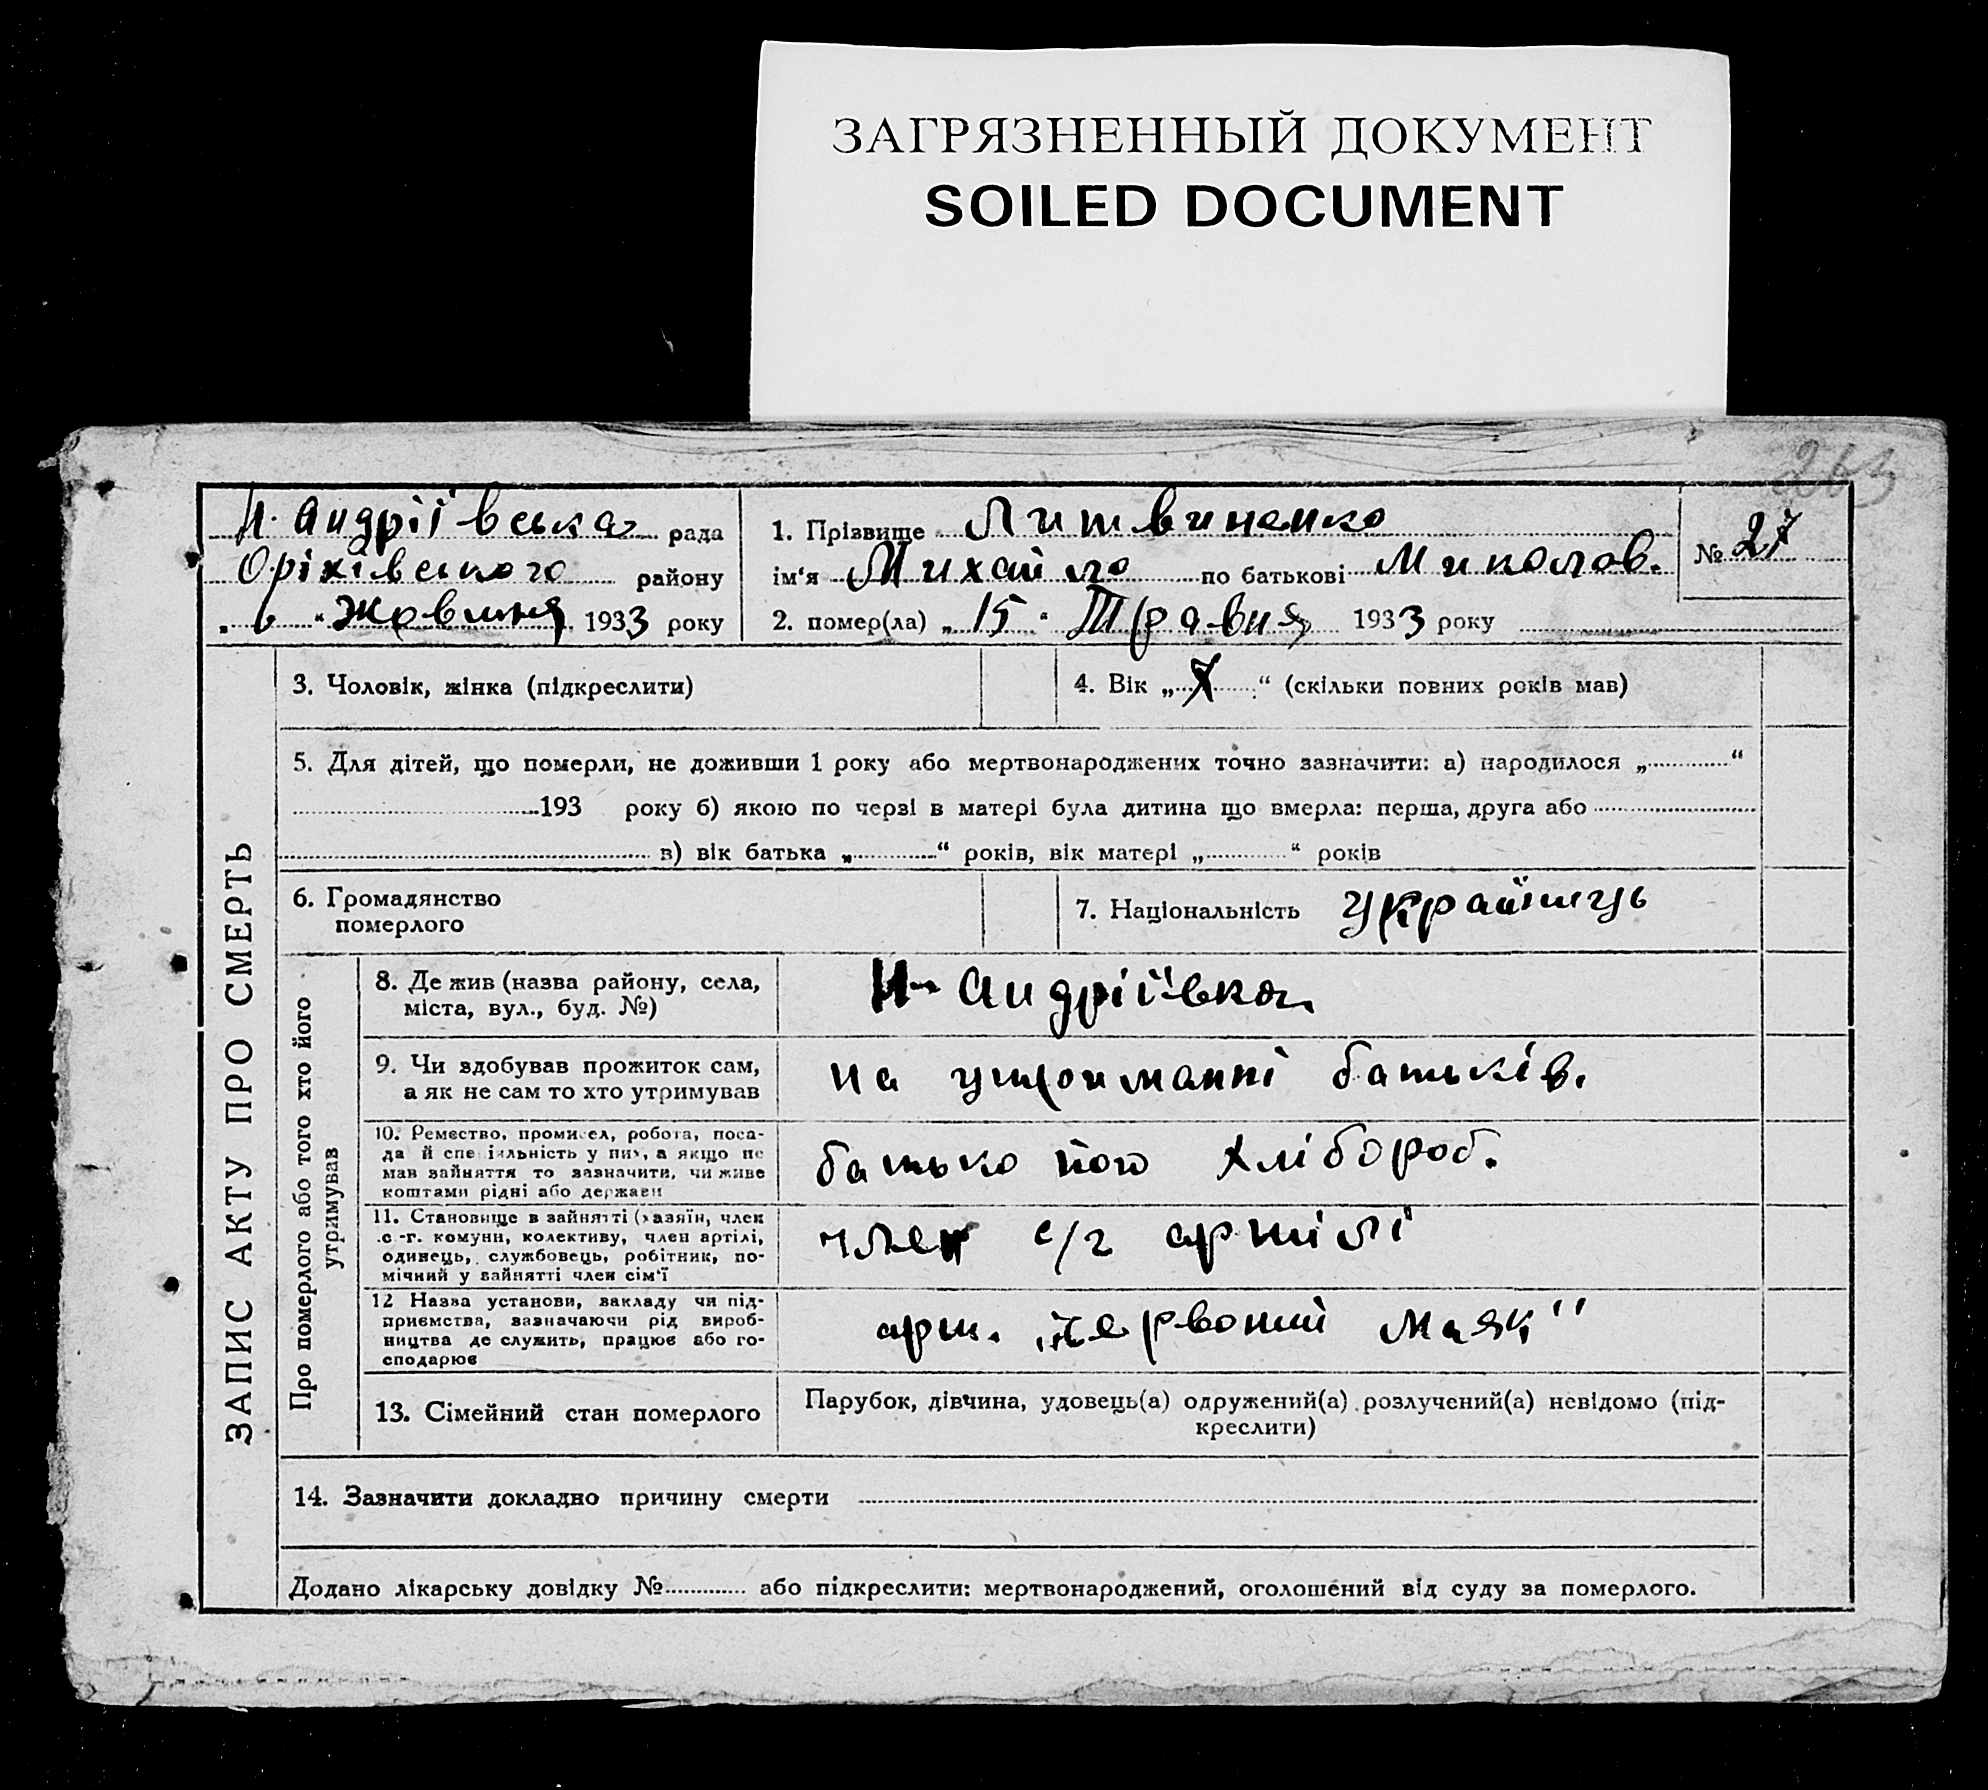 ЗАГРЯЗНЕННЫЙ ДОКУМЕНТ
SOILED DOCUMENT
263
Н. Андріївська рада
Оріхівського району
„ 6 “ жовтня 1933 року
1. Прізвище Литвиненко
ім‘я Михайло по батькові Миколов.
2. помер(ла) „ 15 “ Травня 1933 року
№ 27
ЗАПИС АКТУ ПРО СМЕРТЬ
3. Чоловік, жінка (підкреслити)
4. Вік „ 7 “ (скільки повних років мав)
5. Для дітей, що померли, не доживши 1 року або мертвонароджених точно зазначити: а) народилося „ “
193 року б) якою по черзі в матері була дитина що вмерла: перша, друга або
в) вік батька „ “ років, вік матері „ “ років
6. Громадянство
померлого
7. Національність Українець
Про померлого або того хто його
утримував
8. Де жив (назва району, села,
міста, вул., буд. №)
Н-Андріївка
9. Чи здобував прожиток сам,
а як не сам то хто утримував
на утриманні батьків.
10. Ремество, промисел, робота, поса-
да й спеціяльність у них, а якщо не
мав зайняття то зазначити, чи живе
коштами рідні або держави
батько його хлібороб.
11. Становище в зайнятті (хазяїн, член
с.-г. комуни, колективу, член артілі,
одинець, службовець, робітник, по-
мічний у зайнятті член сім‘ї
член с/г артілі
12 Назва установи, закладу чи під-
приємства, зазначаючи рід вироб-
ництва де служить, працює або го-
сподарює
арт. „Червоний маяк"
13. Сімейний стан померлого
Парубок, дівчина, удовець(а) одружений(а) розлучений(а) невідомо (під-
креслити)
14. Зазначити докладно причину смерти
Додано лікарську довідку № або підкреслити: мертвонароджений, оголошений від суду за померлого.